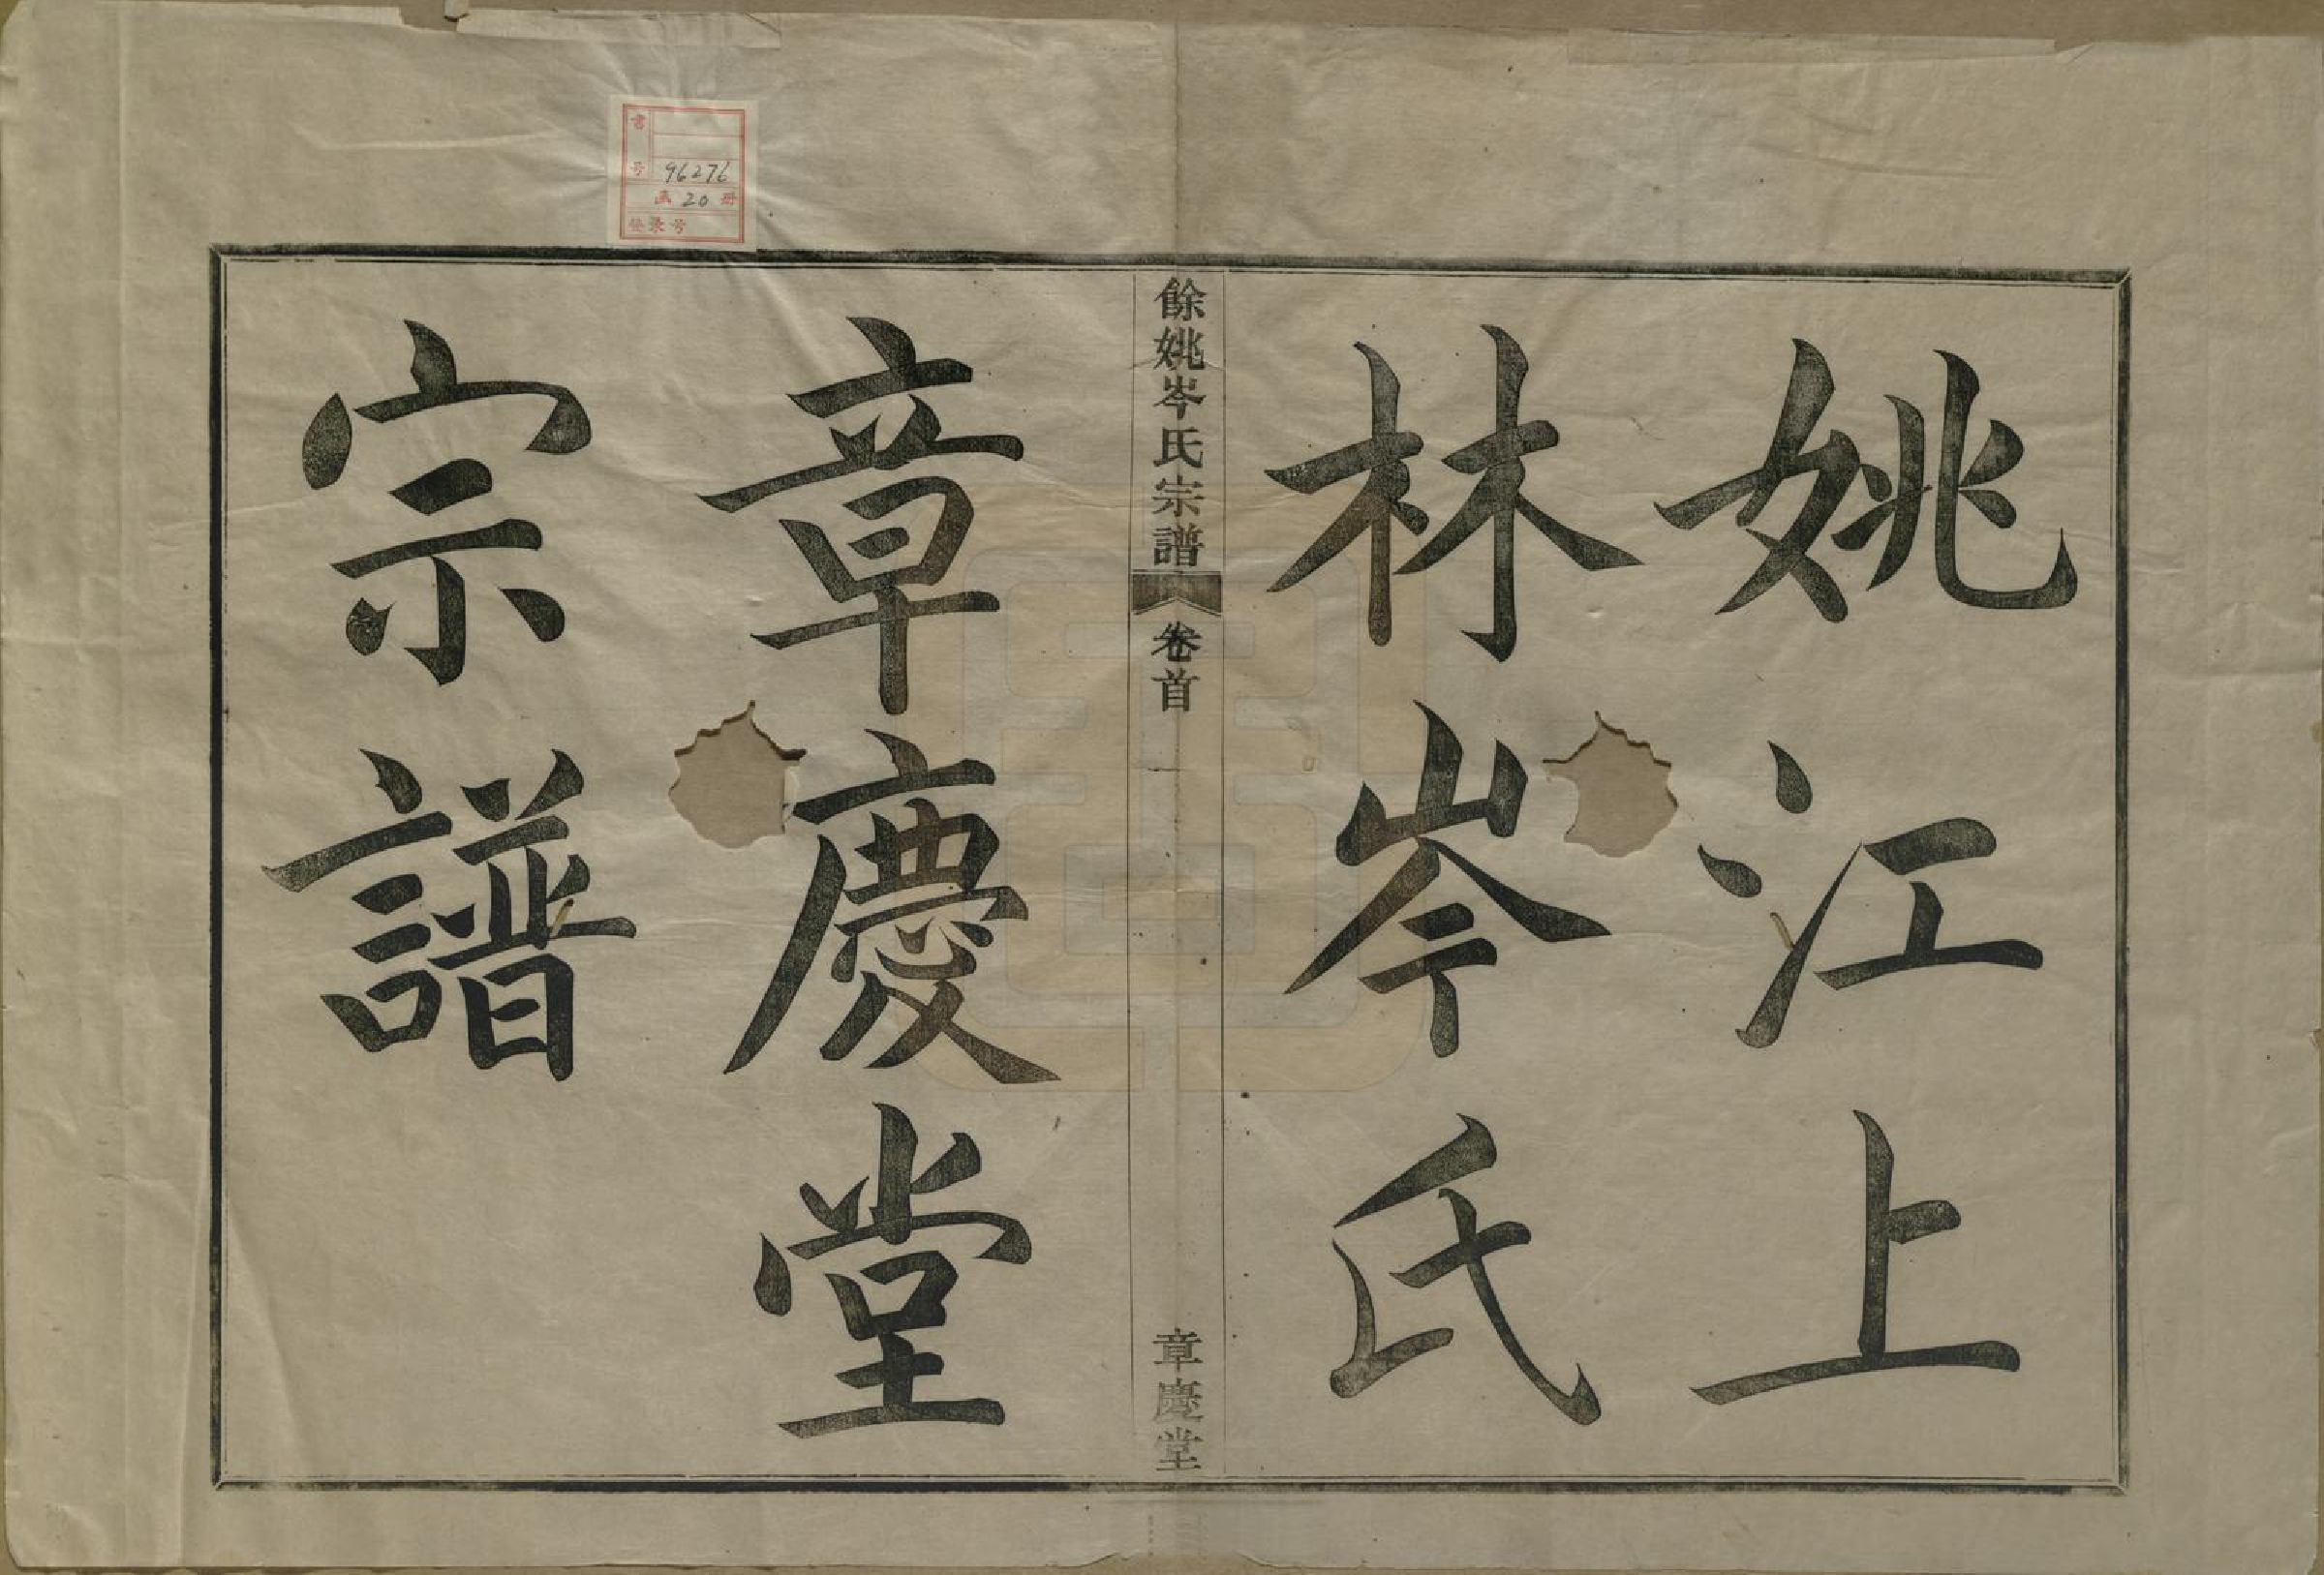 姚江上
林岑氏
餘姚岑氏宗譜
卷首
一
章慶堂
章慶堂
宗譜
書号 96276
函 20 册
登录号